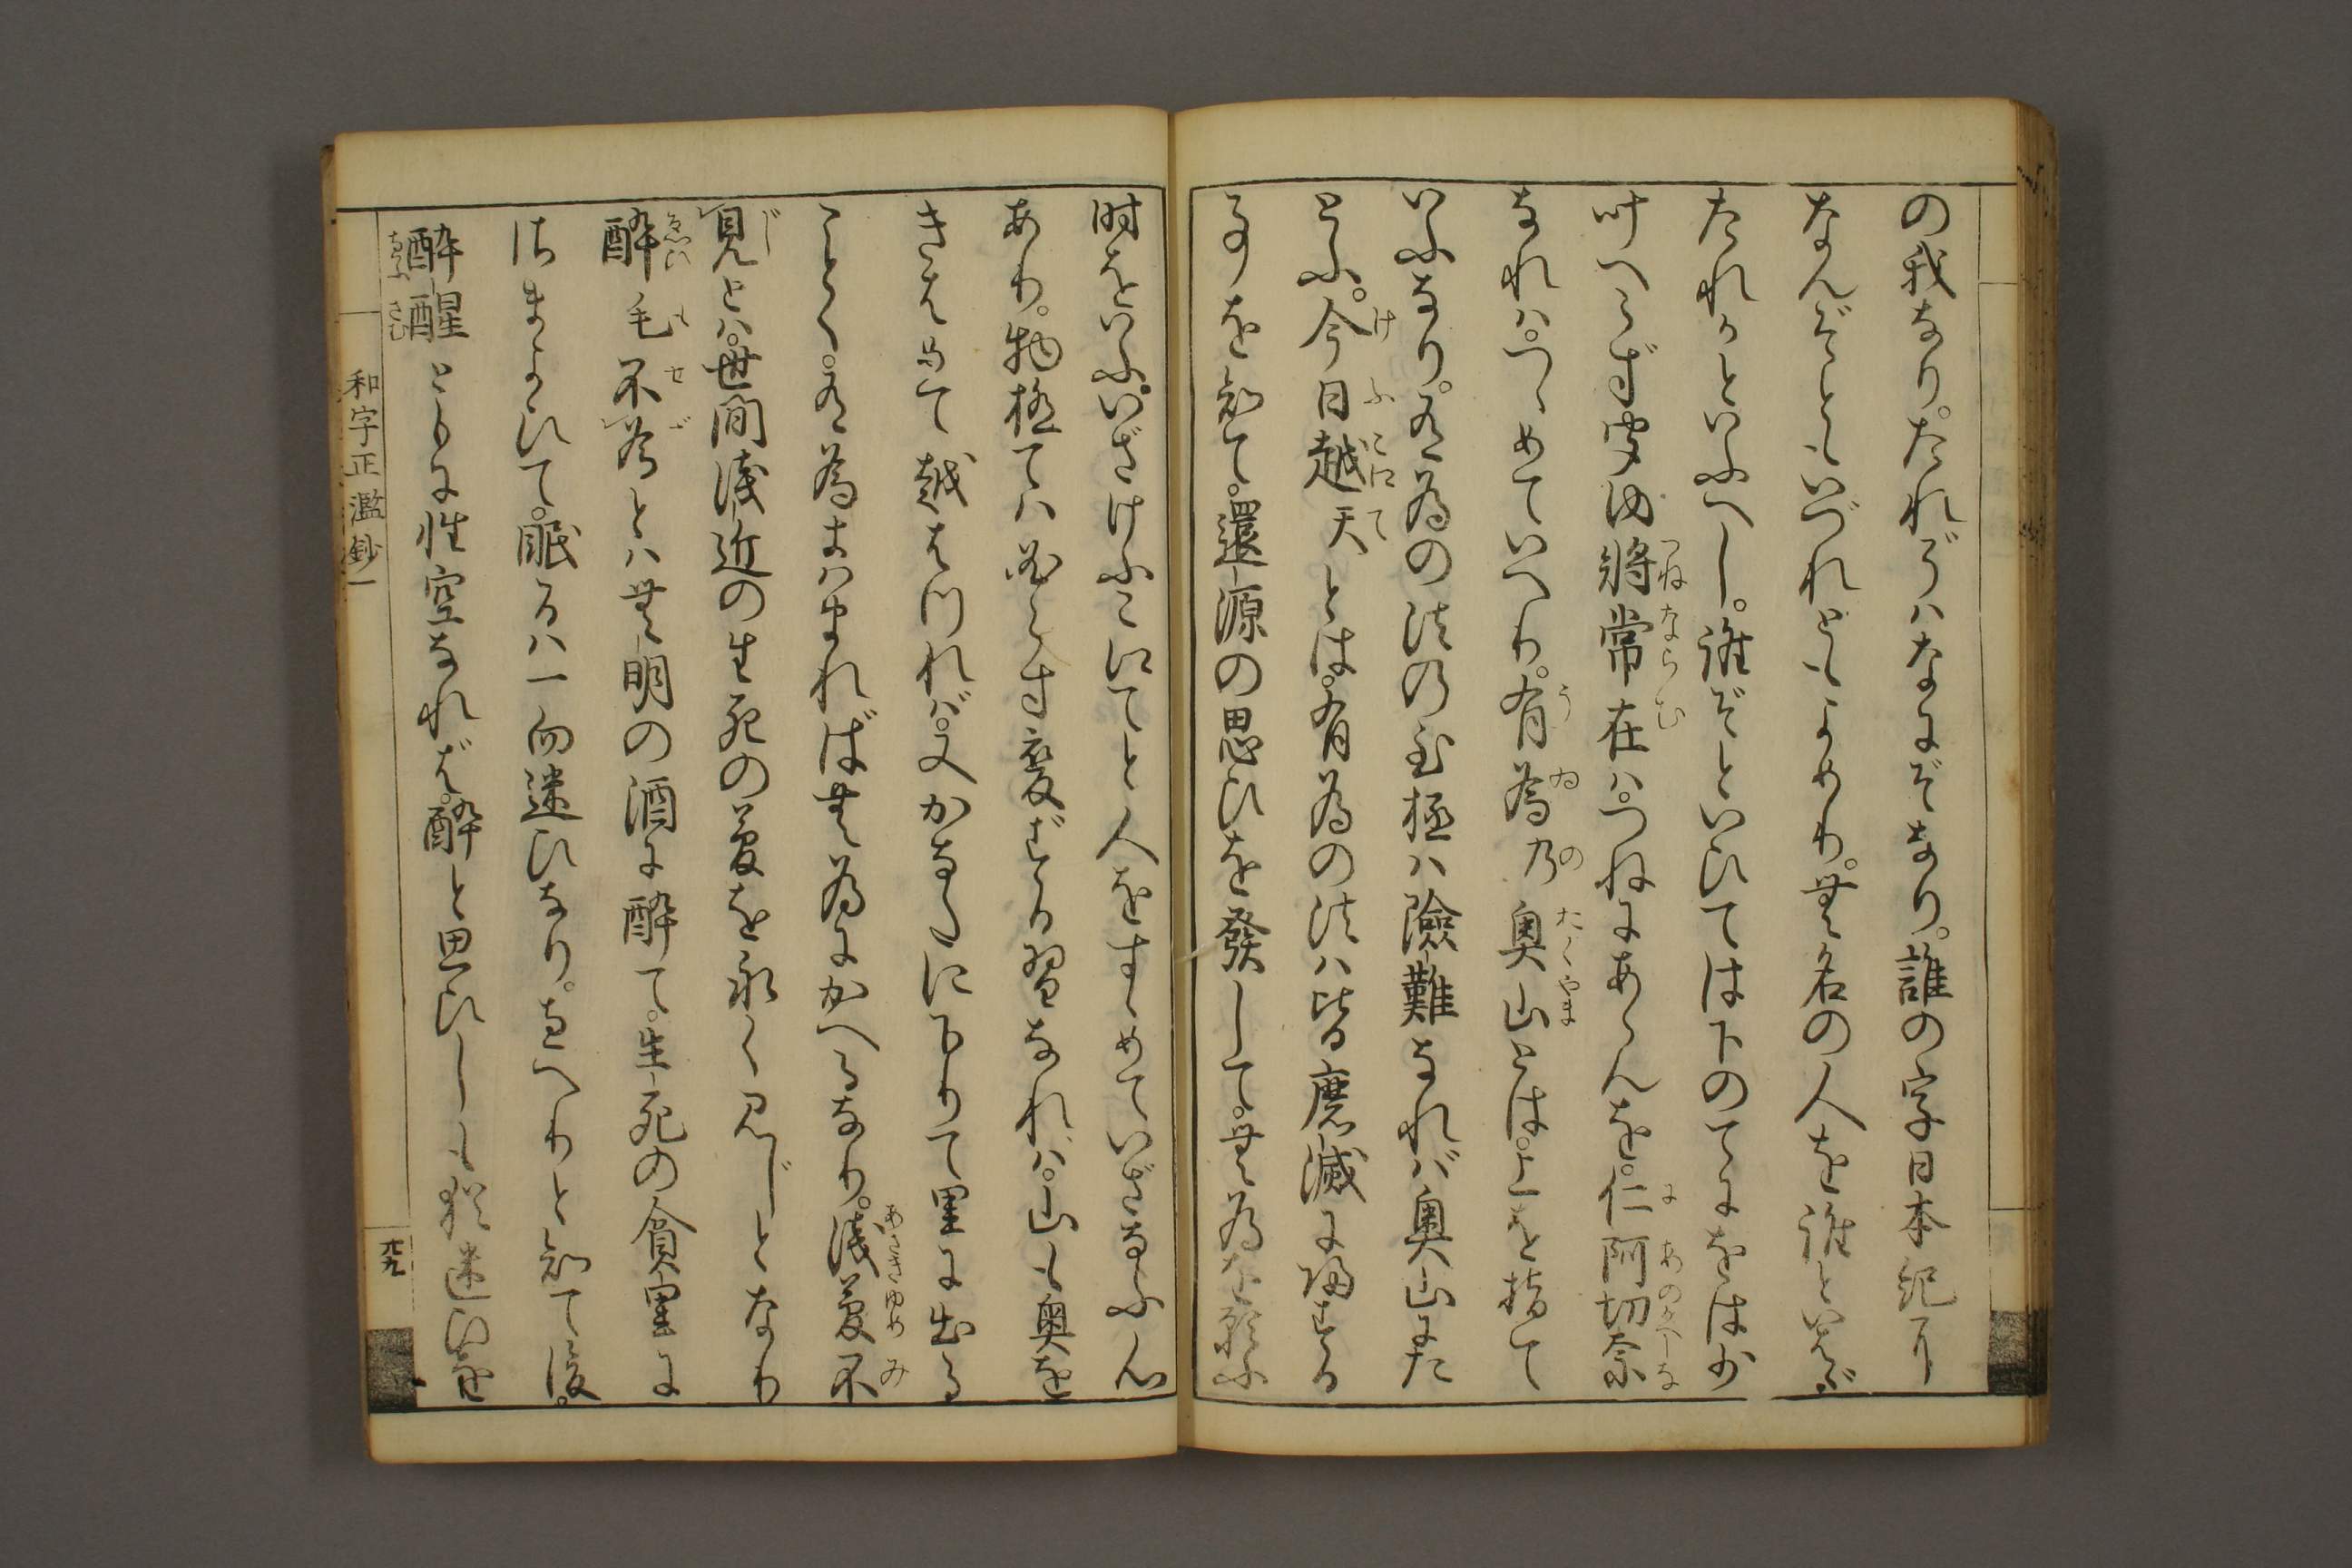 の我なり。たれぞハなにぞなり。誰の字日本紀に
なんぞともいづれともよめり。無名の人を誰といへば
たれかといふへし。誰ぞといひては下のてにをは少
叶へらず。将常在ハ。つねにあらんを。仁阿切奈
なれハ。つゝめていへり。有為乃奥山とは。上を指て
いふなり。有為の法の至極ハ險難なれバ奥山にた
とふ。今日越天とは。有為の法ハ皆磨滅に歸する
事を知て。還源の思ひを發して。無為を願ふ
時をいふ。いざけふこえてと人をすゝめていざなふ心
あり。物極てハ必らず変ずる習なれハ。山も奥を
きはめて越はつれバ。又かなたに下りて里に出る
ことく。有為きはまれば無為にかへるなり。浅夢不
見とハ。世間浅近の生死の夢を永く見じとなり
酔毛不為とハ無明の酒に酔て。生死の貪里に
さまよひて。眠るハ一向迷ひなり。ゑへりと知て後。
酔醒ともに性空なれば。酔と思ひしも猶迷ひ也
和字正濫鈔一